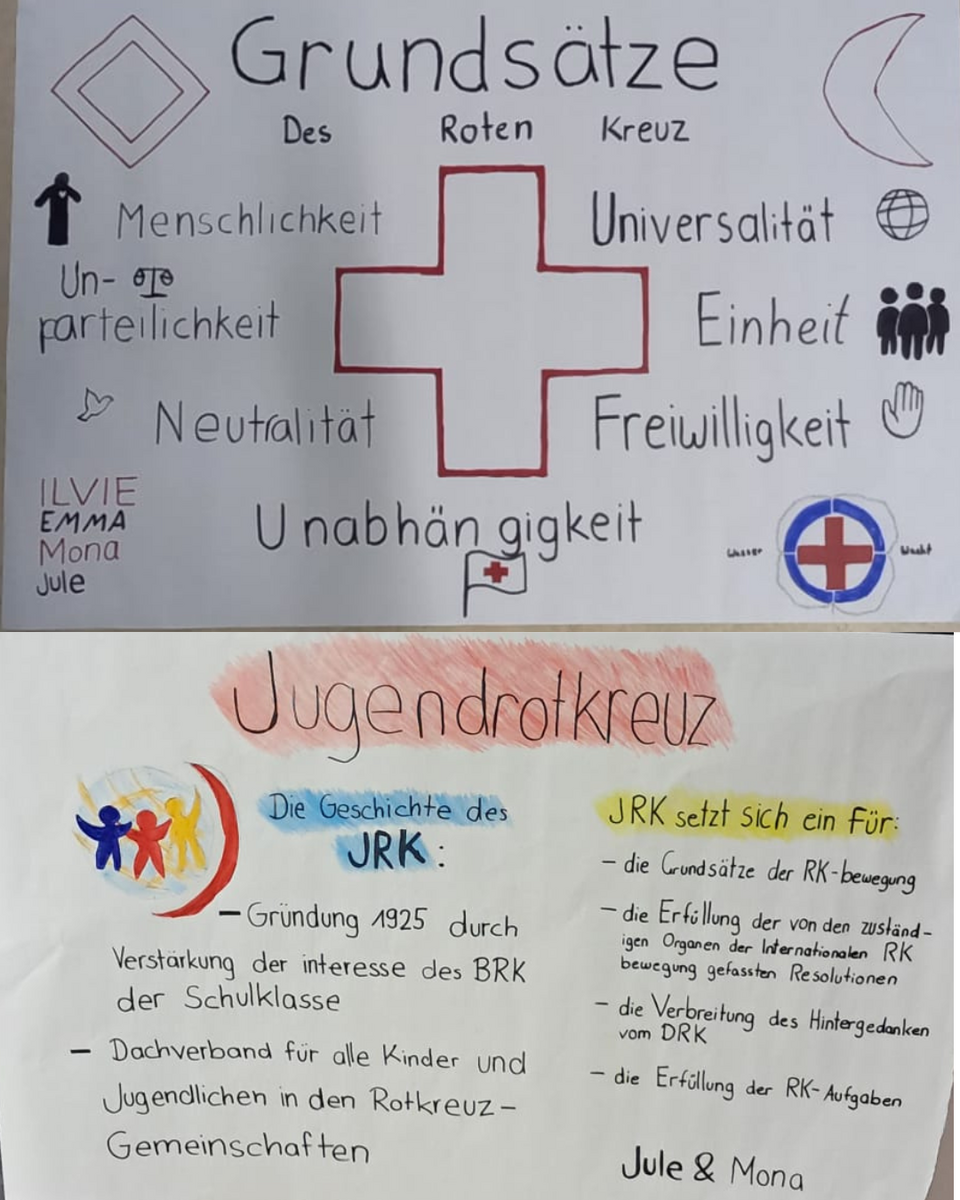 Grundsätze
Des Roten Kreuz
Menschlichkeit
Un-
parteilichkeit
Neutralität
Universalität
Einheit
Freiwilligkeit
Unabhängigkeit
ILVIE
EMMA
Mona
Jule
Wasser
Wacht
Jugendrotkreuz
Die Geschichte des
JRK:
– Gründung 1925 durch
Verstärkung der interesse des BRK
der Schulklasse
– Dachverband für alle Kinder und
Jugendlichen in den Rotkreuz-
Gemeinschaften
JRK setzt sich ein Für:
– die Grundsätze der RK-bewegung
– die Erfüllung der von den zuständ-
igen Organen der Internationalen RK
bewegung gefassten Resolutionen
– die Verbreitung des Hintergedanken
vom DRK
– die Erfüllung der RK-Aufgaben
Jule & Mona